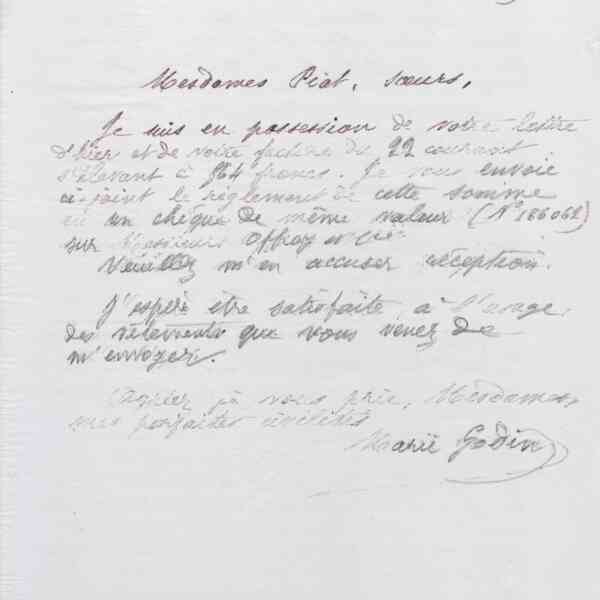 Mesdames Piat, sœurs,
Je suis en possession de votre lettre
d'hier et de votre facture du 22 courant
s'élevant à 864 francs. Je vous envoie
ci-joint le règlement de cette somme
en un chèque de même valeur (N° 186062)
sur Messieurs Offroy et Cie
Veuillez m'en accuser réception.
J'espère être satisfaite à l'usage
des vêtements que vous venez de
m'envoyer.
Agréez je vous prie, Mesdames,
mes parfaites civilités
Marie Godin